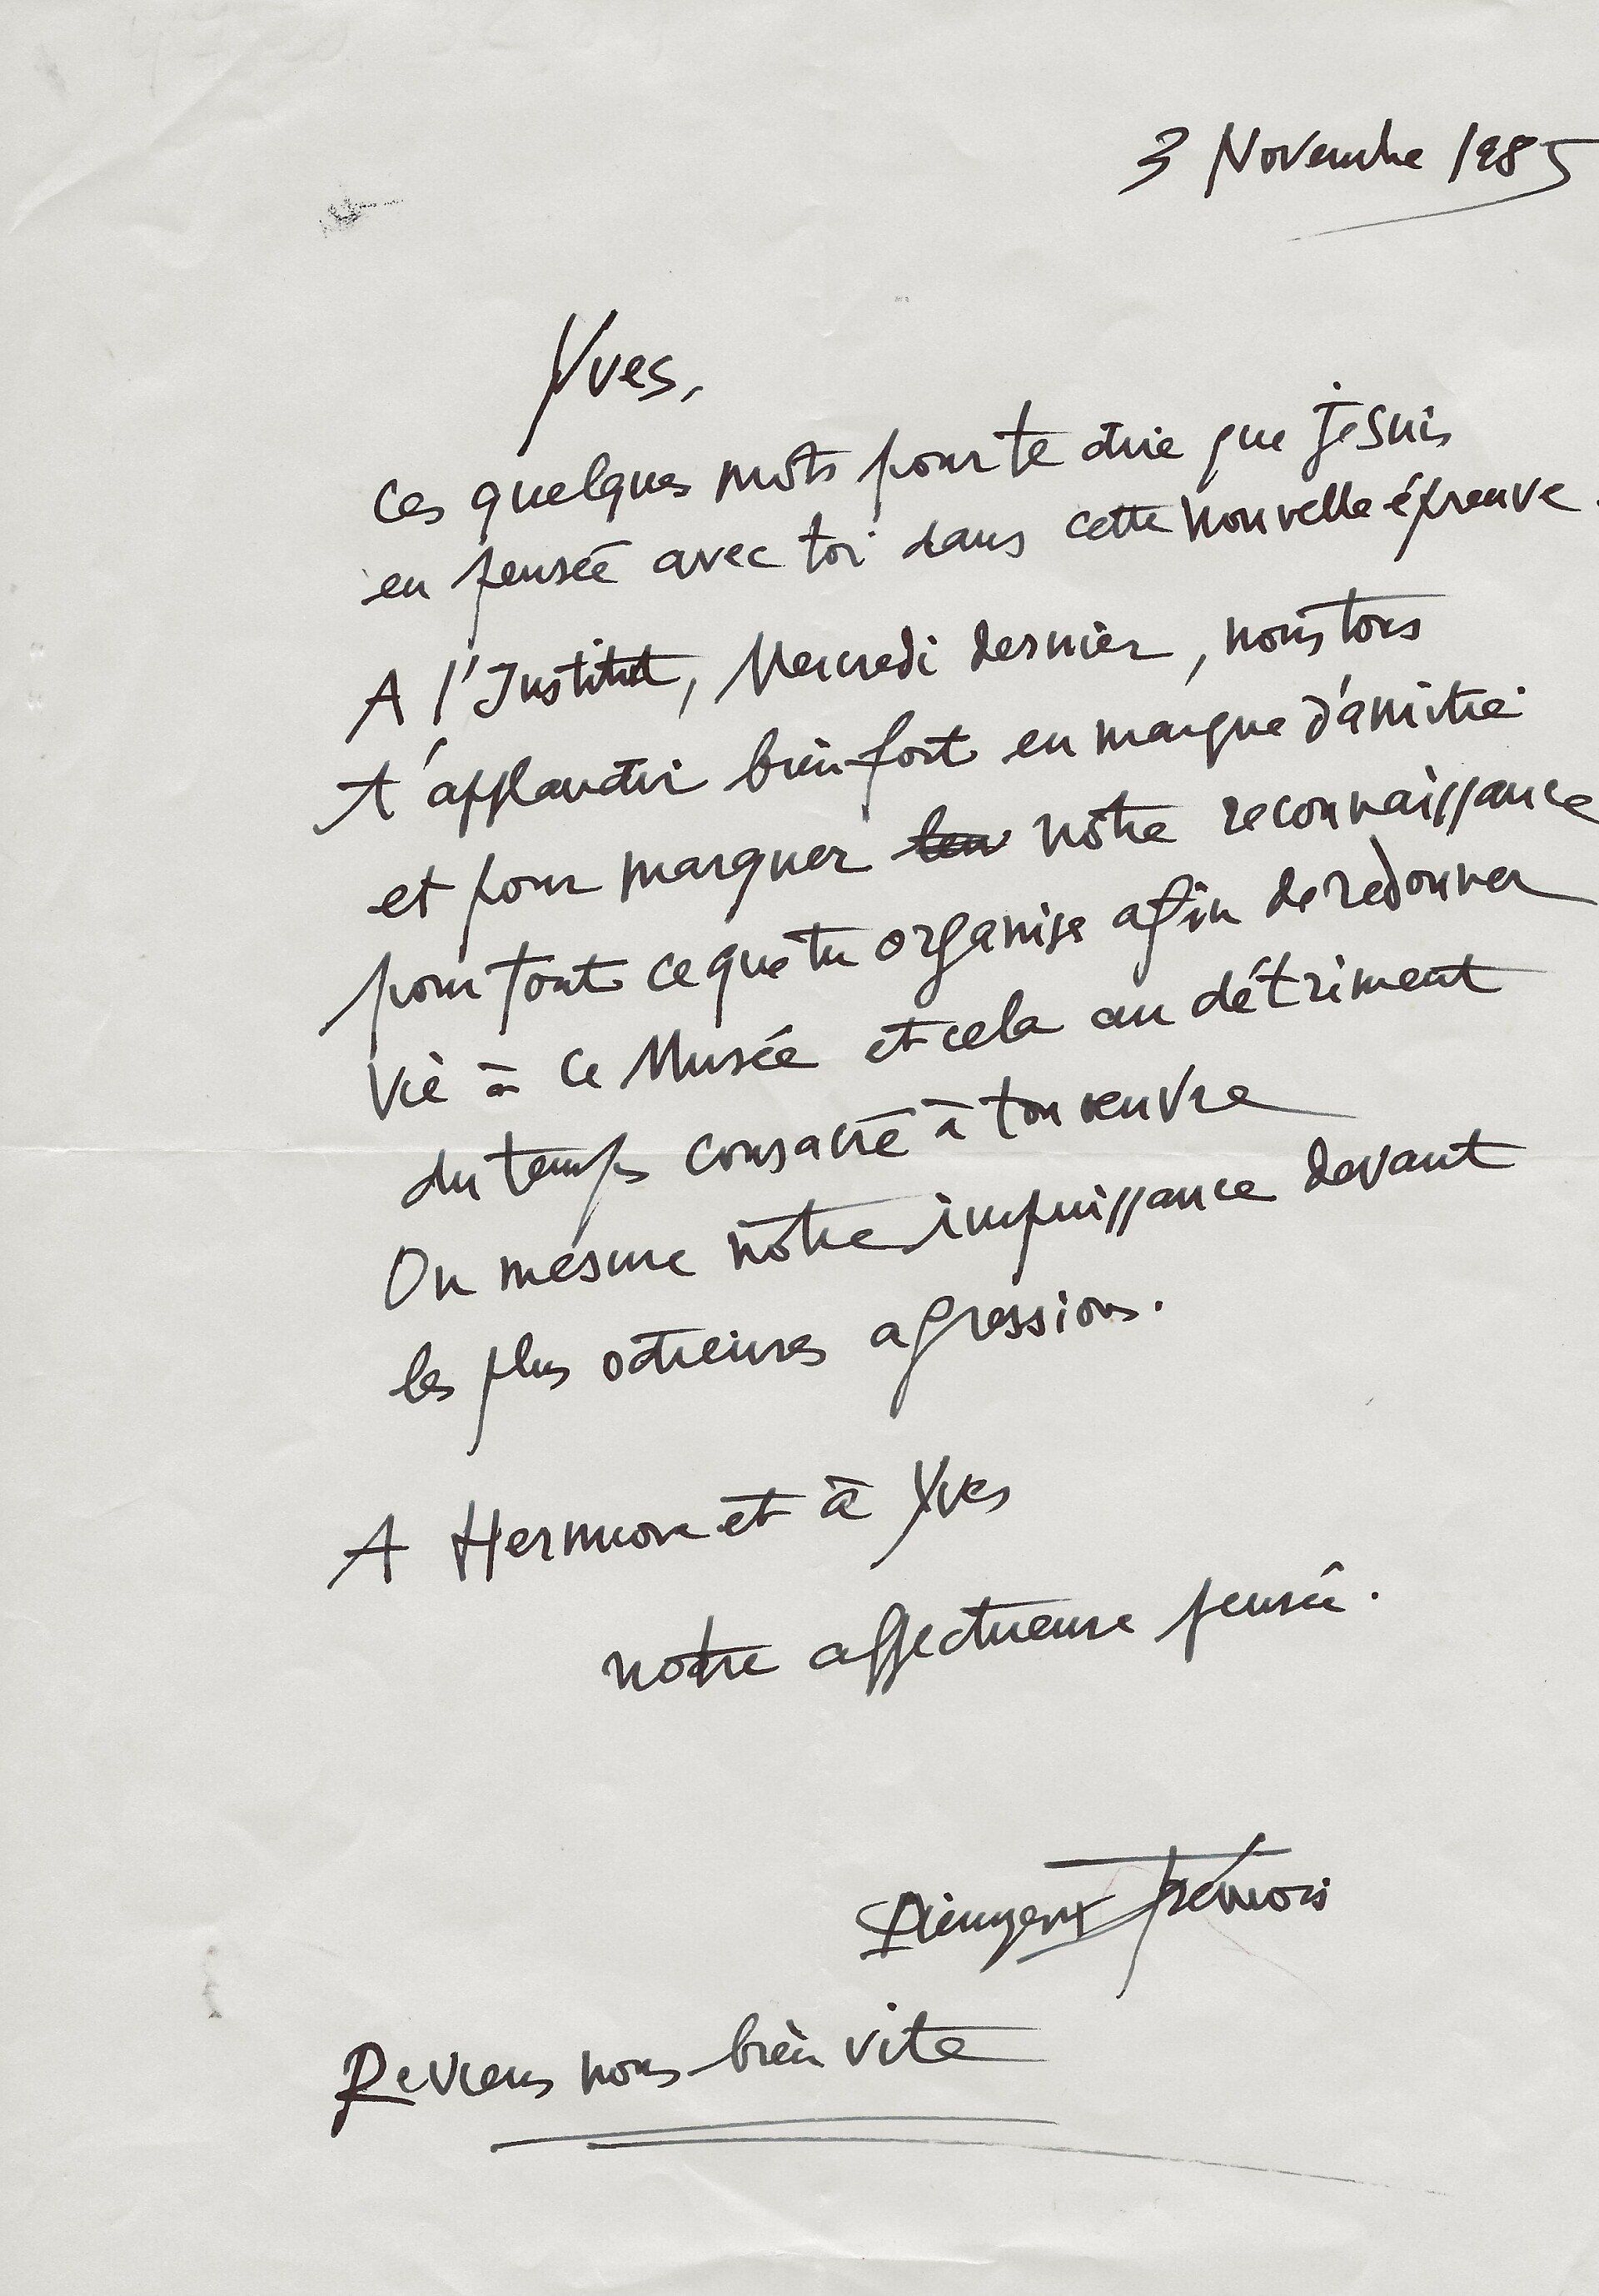 3 Novembre 1985
Yves,
Ces quelques mots pour te dire que je suis
en pensée avec toi dans cette nouvelle épreuve.
A l'Institut, Mercredi dernier, nous tous
t'applaudir bien fort en marque d'amitié
et pour marquer notre reconnaissance
pour tout ce que tu organise afin de redonner
vie à ce Musée et cela au détriment
du temps consacré à ton œuvre
On mesure notre impuissance devant
les plus odieuses agressions.
A Hermione et à Yves
notre affectueuse pensée.
Pierre-Yves Trémois
Reviens nous bien vite